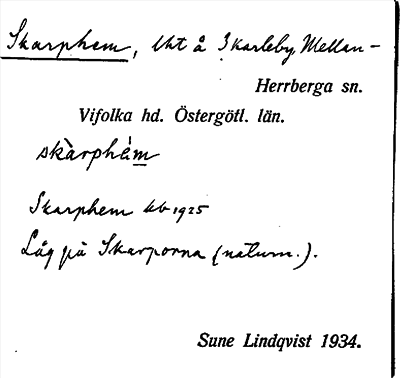 Skarphem, lht å Skarleby, Mellan-
Herrberga sn.
Vifolka hd. Östergötl. län.
skàrphém
Skarphem kb 1925
Låg på Skarporna (naturn.).
Sune Lindqvist 1934.